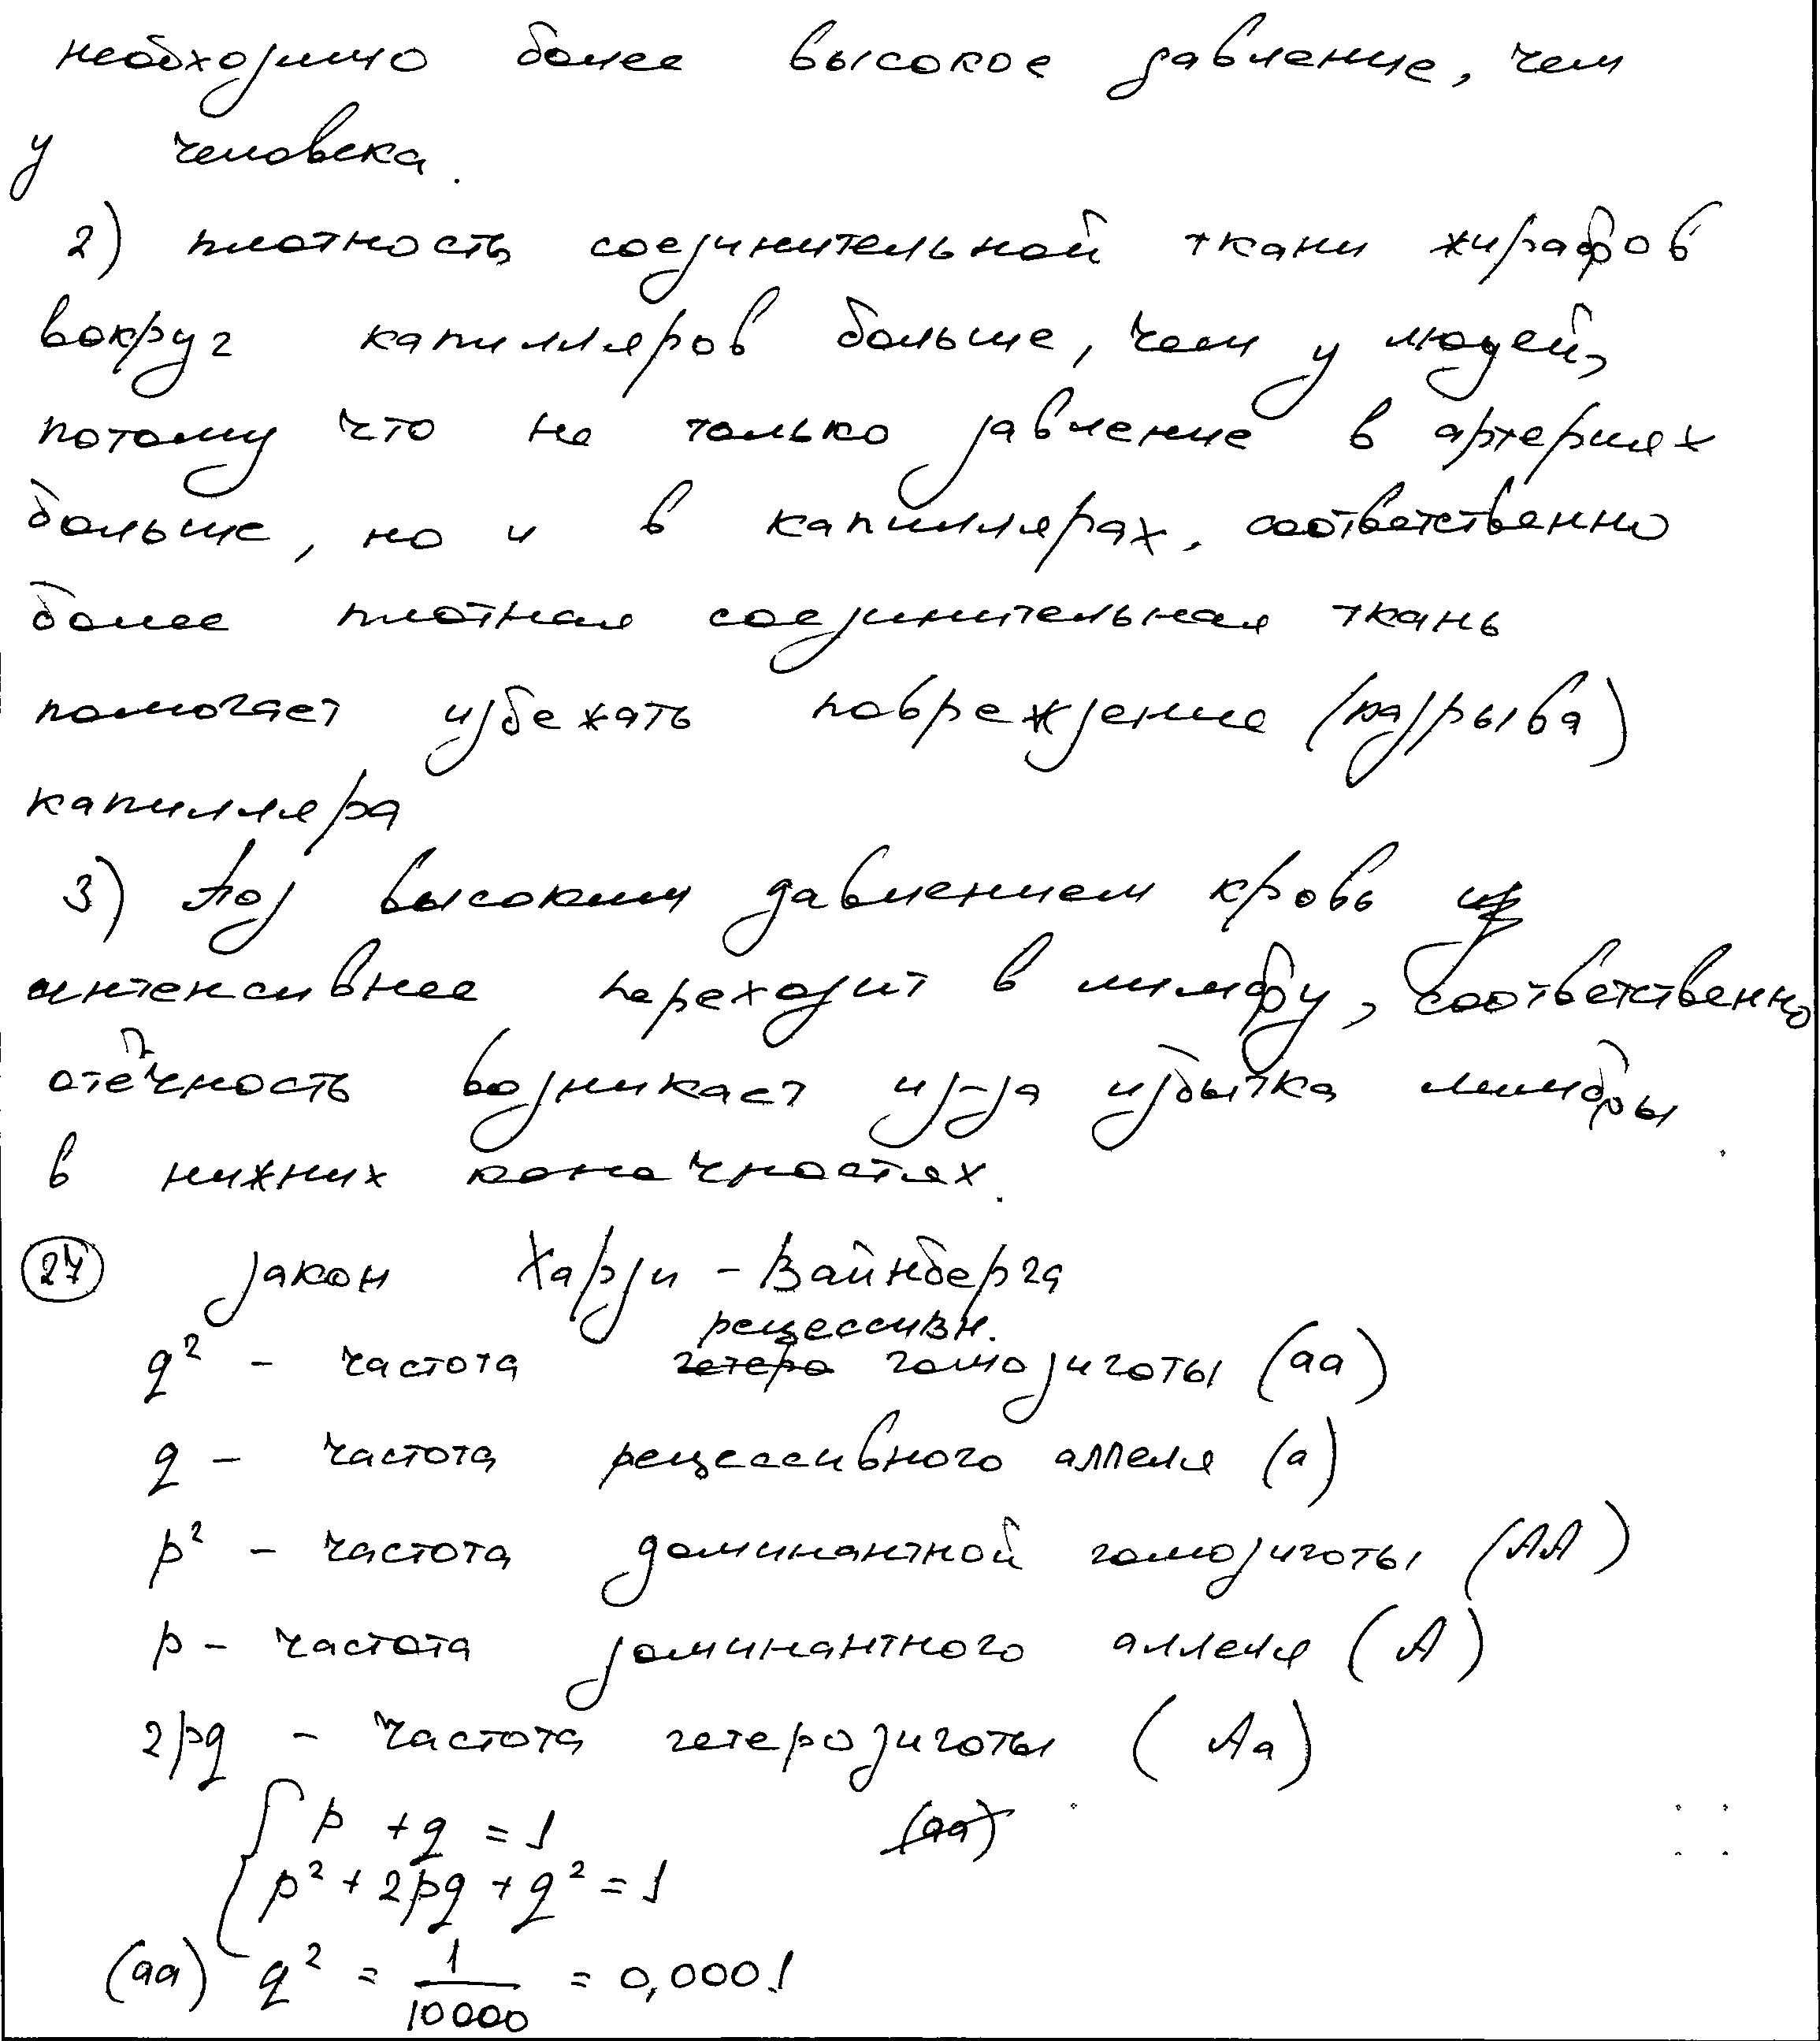 необходимо более высокое давление, чем
у человека.
2) плотность соединительной ткани жирафов
вокруг капилляров больше, чем у людей,
потому что не только давление в артериях
больше, но и в капиллярах, соответственно
более плотная соединительная ткань
помогает избежать повреждение (разрыва)
капилляра
3) Под высоким давлением кровь
интенсивнее переходит в лимфу, соответственно
отечность возникает из-за избытка лимфы
в нижних конечностях.
27 Закон Харди - Вайнберга
рецессивн.
q² - частота гетеро гомозиготы (аа)
q - частота рецессивного аллеля (а)
p² - частота доминантной гомозиготы (АА)
p - частота доминантного аллеля (А)
2pq - частота гетерозиготы (Аа)
p + q = 1 (аа)
p² + 2pq + q² = 1
(аа) q² = 1/10000 = 0,0001